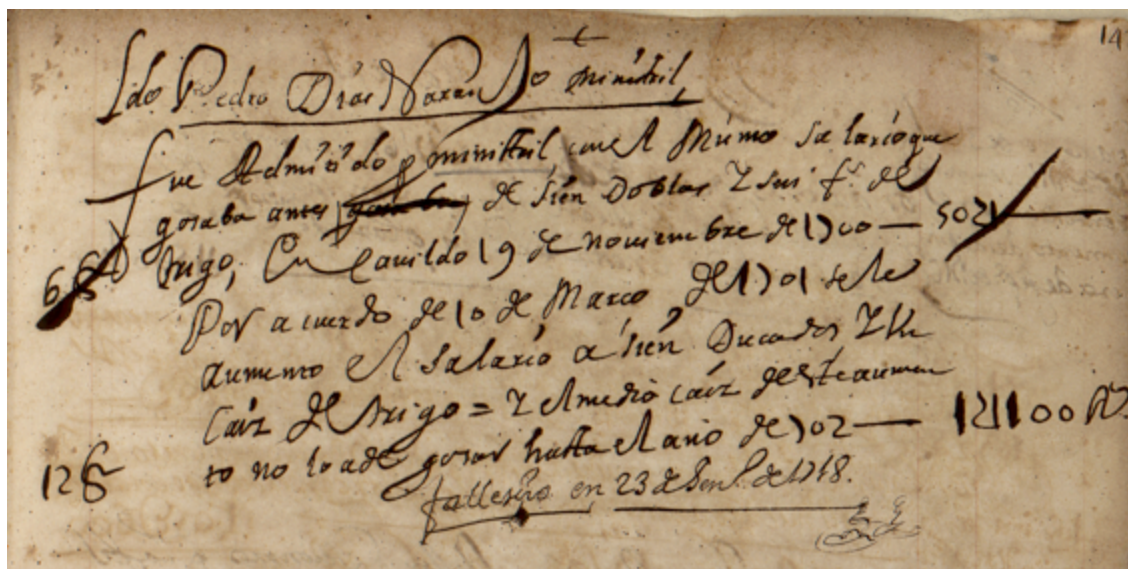 14
Ldo Pedro Dias Naranjo ministril,
fue Admitido por ministril con el Mismo salario que
gosaba antes gosaba de sien Doblas Y seis fs de
trigo, En Cavildo 19 de noviembre de 1700 —
6 f
Por acuerdo de 10 de Março de 1701 se le
aumento el salario a sien Ducados Y Un
Caiz de trigo = Y el medio caiz de este aumen
to no lo a de gosar hasta el año de 702 —
12 f
fallesio en 23 de de 1718.